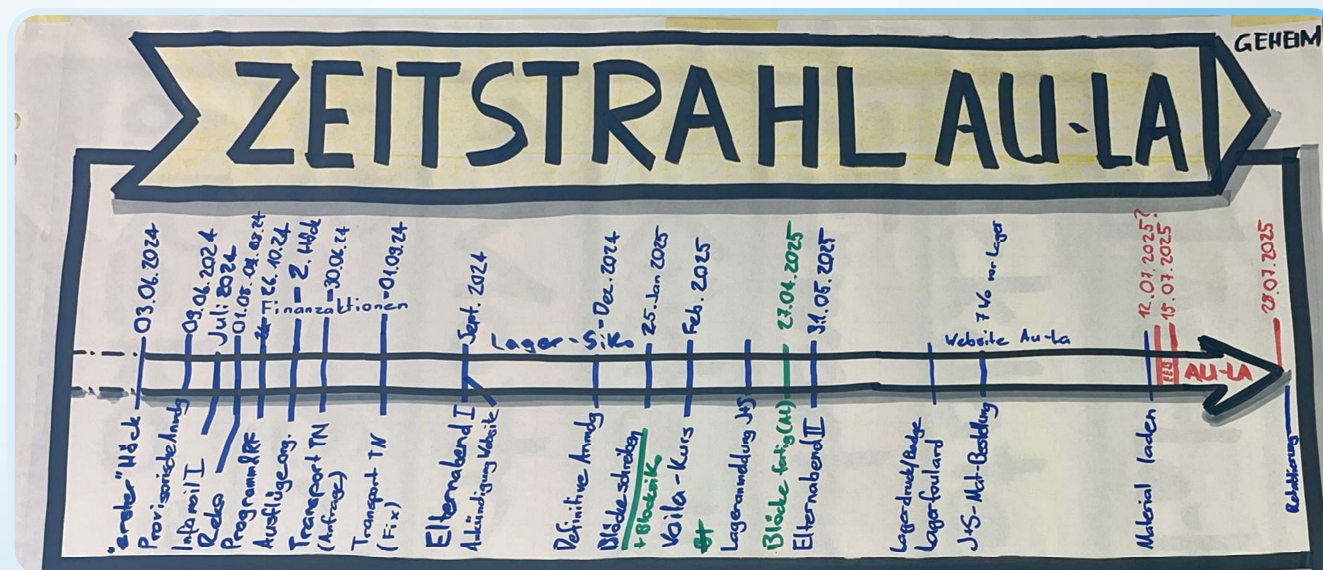 ZEITSTRAHL AU-LA
GEHEIM
03.06.2024
09.06.2024
Juli 2024
Finanzaktionen
2. Höck
30.06.24
01.09.24
Sept. 2024
Lager-SiKo
Dez. 2024
25. Jan 2025
Feb. 2025
27.04.2025
31.05.2025
7 Wo vor Lager
Website Au-La
12.07.2025?
28.07.2025
AU-LA
"erster" Höck
Provisorische Anmdg
Infomail I
Programm
Ausflüge org.
Transport TN
(Anfrage)
Transport TN
(Fix)
Elternabend I
Ankündigung Website
Definitive Anmdg
Blöcke schreiben
+ Blocksiko
Voila-Kurs
Lageranmeldung J+S
Blöcke fertig (AL)
Elternabend II
Lagerdruck/Badge
Lagerfoulard
J+S-Mat-Bestellung
Material laden